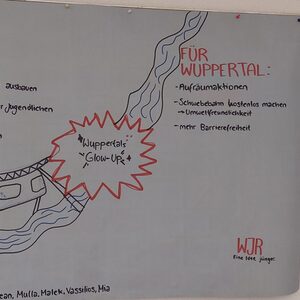 FÜR
WUPPERTAL:
ausbauen
- Aufräumaktionen
r Jugendlichen
- Schwebebahn kostenlos machen
→ Umweltfreundlichkeit
- mehr Barrierefreiheit
Wuppertals
Glow-Up
WJR
Eine
jünger.
ean, Mulla, Malek, Vassilios, Mia